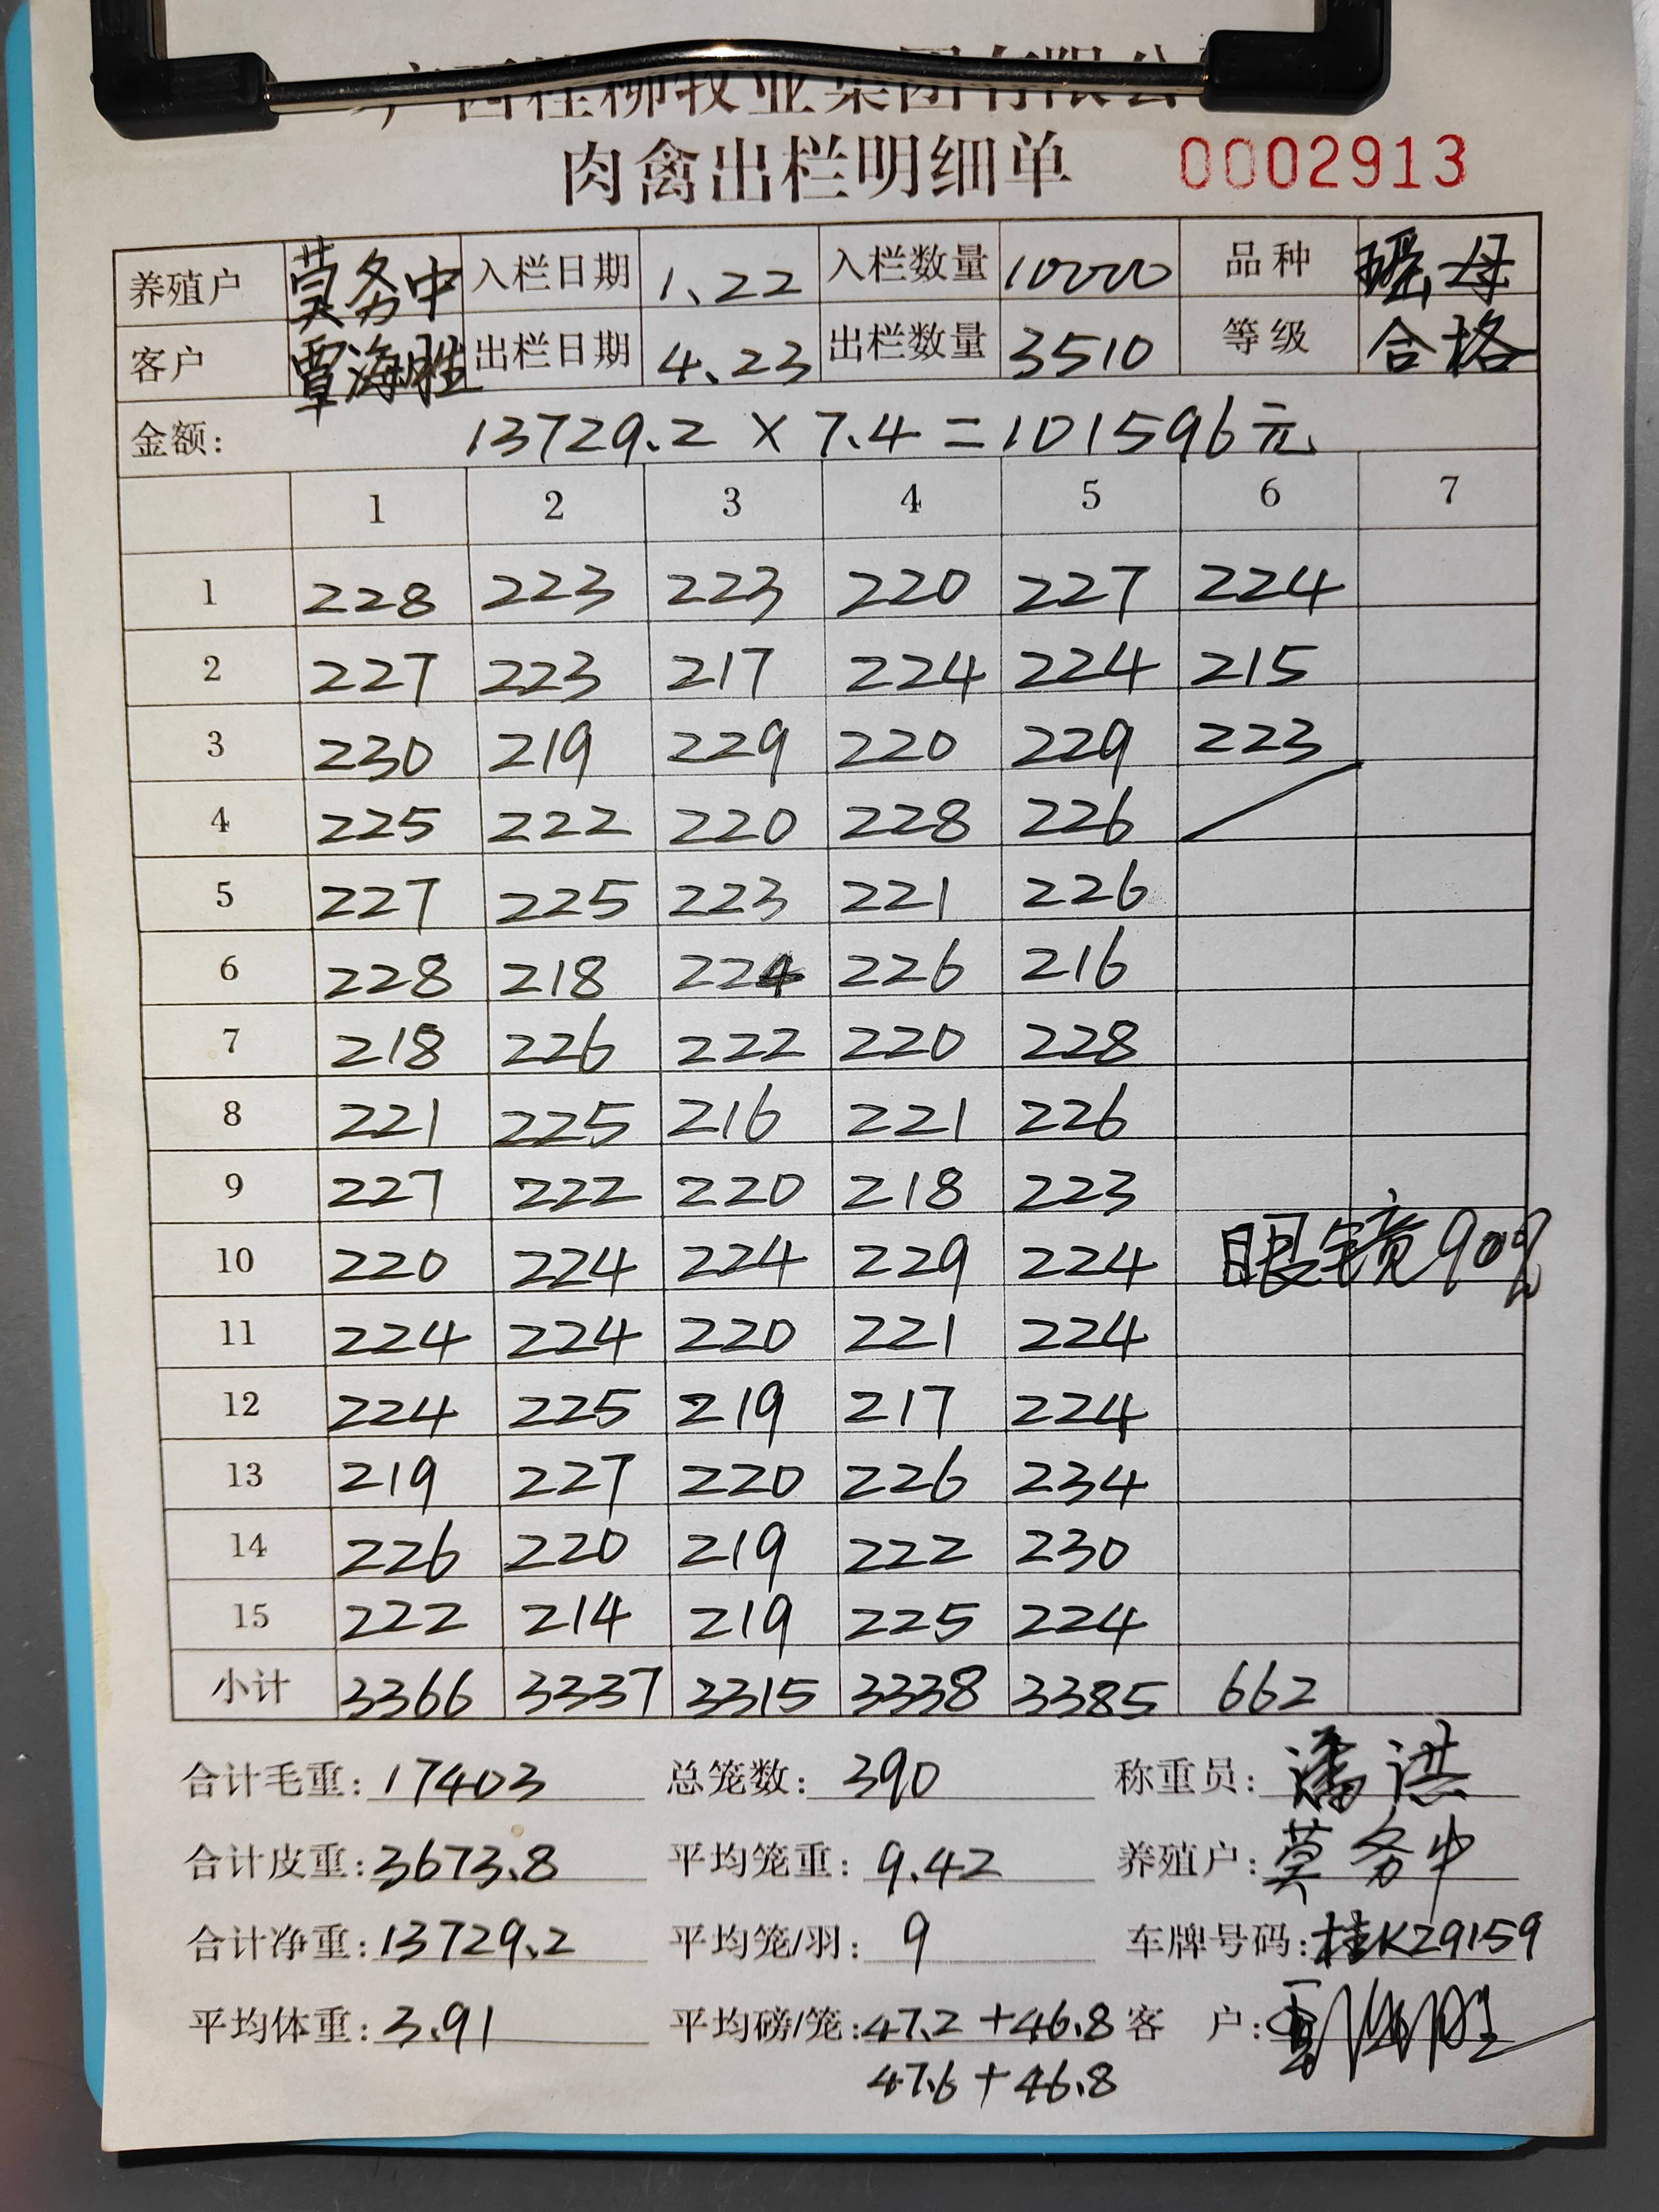 广西桂柳牧业集团有限公
肉禽出栏明细单 0002913
养殖户 莫务中 入栏日期 1.22 入栏数量 10000 品种 瑶母
客户 覃海胜 出栏日期 4.23 出栏数量 3510 等级 合格
金额: 13729.2 × 7.4 = 101596元
1 2 3 4 5 6 7
1 228 223 223 220 227 224
2 227 223 217 224 224 215
3 230 219 229 220 229 223
4 225 222 220 228 226
5 227 225 223 221 226
6 228 218 224 226 216
7 218 226 222 220 228
8 221 225 216 221 226
9 227 222 220 218 223
10 220 224 224 229 224 眼镜90%
11 224 224 220 221 224
12 224 225 219 217 224
13 219 227 220 226 234
14 226 220 219 222 230
15 222 214 219 225 224
小计 3366 3337 3315 3338 3385 662
合计毛重: 17403 总笼数: 390 称重员: 潘洪
合计皮重: 3673.8 平均笼重: 9.42 养殖户: 莫务中
合计净重: 13729.2 平均笼/羽: 9 车牌号码: 桂KZ9159
平均体重: 3.91 平均磅/笼: 47.2+46.8 客 户:
47.6+46.8